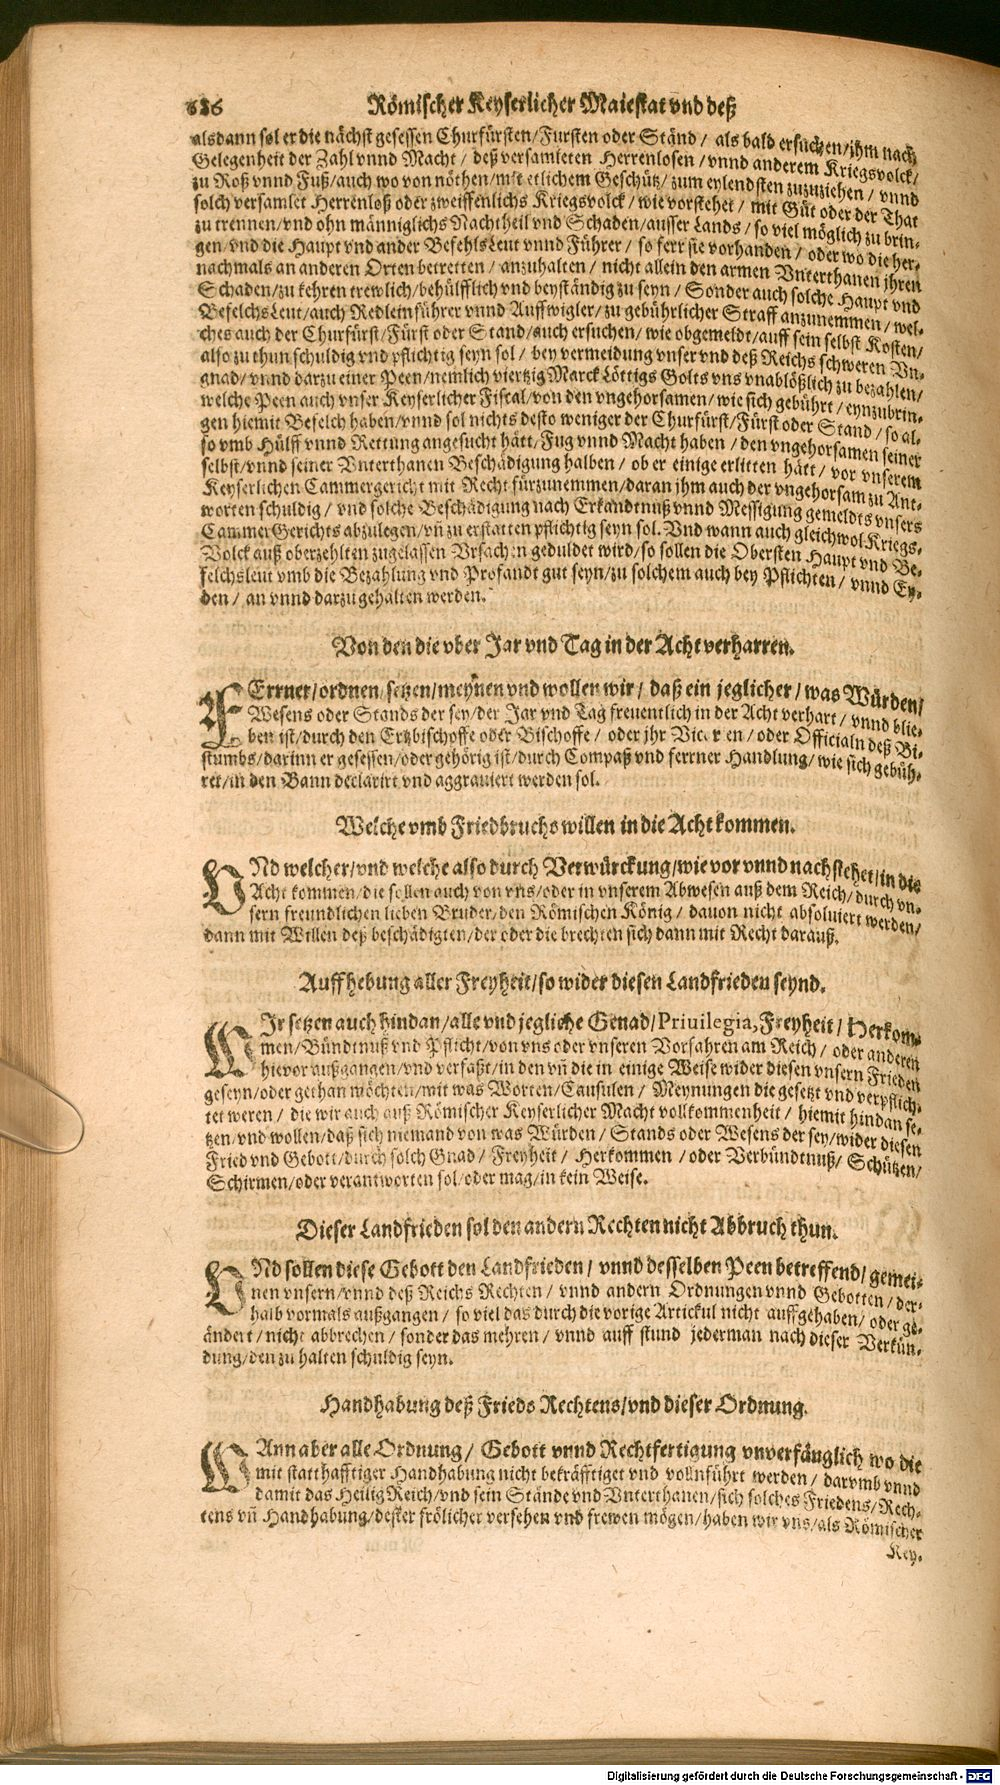 686 Römischer Keyserlicher Maiestat vnd deß
alsdann sol er die nächst gesessen Churfürsten/Fürsten oder Ständ / als bald ersuchen/jhm nach
Gelegenheit der Zahl vnnd Macht / deß versamleten Herrenlosen / vnnd anderem Kriegsvolck/
zu Roß vnnd Fuß/auch wo von nöthen/mit etlichem Geschütz/ zum eylendsten zuzuziehen / vnnd
solch versamlet Herrenloß oder zweiffenlichs Kriegsvolck / wie vorstehet / mit Güt oder der That
zu trennen/vnd ohn männiglichs Nachtheil vnd Schaden/ausser Lands / so viel möglich zu brin-
gen/vnd die Haupt vnd ander BefehlsLeut vnnd Führer / so ferr sie vorhanden / oder wo die her-
nachmals an anderen Orten betretten / anzuhalten / nicht allein den armen Vnterthanen jhren
Schaden/zu kehren trewlich/behülfflich vnd beyständig zu seyn / Sonder auch solche Haupt vnd
BefelchsLeut/auch Redleinführer vnnd Auffwigler/zu gebührlicher Straff anzunemmen / wel-
ches auch der Churfürst/Fürst oder Stand/auch ersuchen/ wie obgemeldt/auff sein selbst Kosten/
also zu thun schuldig vnd pflichtig seyn sol / bey vermeidung vnser vnd deß Reichs schweren Vn-
gnad/vnnd darzu einer Peen/nemlich viertzig Marck Löttigs Golts vns vnablößlich zu bezahlen/
welche Peen auch vnser Keyserlicher Fiscal/von den vngehorsamen/wie sich gebührt/eynzubrin-
gen hiemit Befelch haben/vnnd sol nichts desto weniger der Churfürst/Fürst oder Stand / so al-
so vmb Hülff vnnd Rettung angesucht hätt/Fug vnnd Macht haben / den vngehorsamen seiner
selbst/vnnd seiner Vnterthanen Beschädigung halben / ob er einige erlitten hätt / vor vnserem
Keyserlichen Cammergericht mit Recht fürzunemmen/daran jhm auch der vngehorsam zu Ant-
worten schuldig / vnd solche Beschädigung nach Erkandtnuß vnnd Messigung gemeldts vnsers
CammerGerichts abzulegen/vñ zu erstatten pflichtig seyn sol. Vnd wann auch gleichwol Kriegs-
Volck auß oberzehlten zugelassen Vrsachen geduldet wird/so sollen die Obersten Haupt vnd Be-
felchsleut vmb die Bezahlung vnd Profandt gut seyn/zu solchem auch bey Pflichten / vnnd Ey-
den / an vnnd darzu gehalten werden.
Von den die vber Jar vnd Tag in der Acht verharren.
FErrner/ordnen/setzen/meynen vnd wollen wir / daß ein jeglicher / was Würden/
Wesens oder Stands der sey/der Jar vnd Tag freuentlich in der Acht verhart / vnnd blie-
ben ist/durch den Ertzbischoffe oder Bischoffe / oder jhr Vicarien / oder Officialn deß Bi-
stumbs/darinn er gesessen/oder gehörig ist/durch Compaß vnd ferrner Handlung/wie sich gebüh-
ret/in den Bann declarirt vnd aggrauiert werden sol.
Welche vmb Friedbruchs willen in die Acht kommen.
VNd welcher/vnd welche also durch Verwürckung/wie vor vnnd nach stehet/in die
Acht kommen/die sollen auch von vns/oder in vnserem Abwesen auß dem Reich/durch vn-
sern freundlichen lieben Bruder/den Römischen König / dauon nicht absoluiert werden/
dann mit Willen deß beschädigten/der oder die brechten sich dann mit Recht darauß.
Auffhebung aller Freyheit/so wider diesen Landfrieden seynd.
WIr setzen auch hindan/alle vnd jegliche Genad/Priuilegia, Freyheit / Herkom-
men/Bündtnuß vnd Pflicht/von vns oder vnseren Vorfahren am Reich / oder anderen
hievor außgangen/vnd verfaßt/in den vñ die in einige Weise wider diesen vnsern Frieden
geseyn/oder gethan möchten/mit was Worten/Causulen / Meynungen die gesetzt vnd verpflich-
tet weren / die wir auch auß Römischer Keyserlicher Macht vollkommenheit / hiemit hindan se-
tzen/vnd wollen/daß sich niemand von was Würden / Stands oder Wesens der sey/wider diesen
Fried vnd Gebott/durch solch Gnad / Freyheit / Herkommen / oder Verbündtnuß/ Schützen/
Schirmen/oder verantworten sol/oder mag/in kein Weise.
Dieser Landfrieden sol den andern Rechten nicht Abbruch thun.
VNd sollen diese Gebott den Landfrieden / vnnd desselben Peen betreffend/ gemei-
nen vnsern/vnnd deß Reichs Rechten / vnnd andern Ordnungen vnnd Gebotten / der-
halb vormals außgangen / so viel das durch die vorige Artickul nicht auffgehaben/ oder ge-
ändert / nicht abbrechen / sonder das mehren / vnnd auff stund jederman nach dieser Verkün-
dung/den zu halten schuldig seyn.
Handhabung deß Frieds Rechtens/vnd dieser Ordnung.
WAnn aber alle Ordnung / Gebott vnnd Rechtfertigung vnverfänglich wo die
mit statthafftiger Handhabung nicht bekräfftiget vnd vollnführt werden / darvmb vnnd
damit das Heilig Reich/vnd sein Stände vnd Vnterthanen/sich solches Friedens/Rech-
tens vñ Handhabung/dester frölicher versehen vnd frewen mögen/haben wir vns/als Römischer
Key-
Digitalisierung gefördert durch die Deutsche Forschungsgemeinschaft - DFG